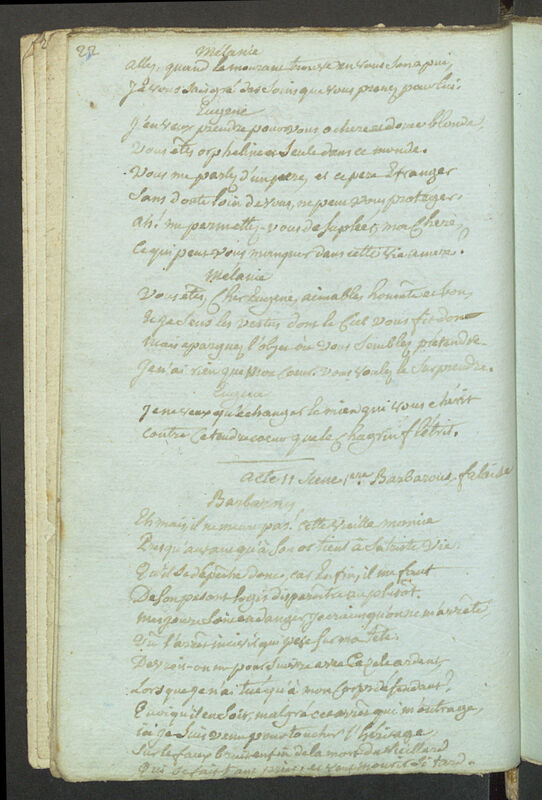 22
Mélanie
allez, quand le mourant trouve en vous son apui,
Je vous sais gré des soins que vous prenez pour lui.
Eugene
J'en veux prendre pour vous o chere et douce blonde,
Vous êtes orpheline et seule dans ce monde.
Vous me parlez d'un pere, et ce pere Etranger
Sans doute loin de vous, ne peut vous proteger.
Ah! me permettez-vous de supléer, ma Chere,
Ce qui peut vous manquer dans cette vie amere.
Mélanie
Vous êtes, Cher Eugene, aimable, honnête et bon,
Et je sens les vertus dont le Ciel vous fit don
Mais epargnez l'objet où vous semblez prétendre
Je n'ai rien que mon coeur. vous voulez le surprendre.
Eugene
Je ne veux qu'échanger le mien qui vous chérit
Contre ce tendre coeur que le chagrin flétrit.
acte 11 Scene 1ere Barbarous,
Barbarous
Eh mais, il ne meurt pas! cette vieille momie
Presqu'autant qu'à son or tient à sa triste vie.
Qu'il se depêche donc, car Enfin, il me faut
De son pesant logis disparaitre au plutot.
mes jours sont en danger, je crains qu'on ne m'arrête
Vu l'arrêt incivil qui pese sur ma tête.
Devroit-on me poursuivre avec ce zele ardent
Lorsque je n'ai tué qu'à mon Corps defendant?
Quoi qu'il en soit, malgré cet arrêt qui m'outrage,
ici je suis venu pour toucher l'héritage,
Sur le faux bruit enfin de la mort du vieillard
Qui se fait tant prier, et veut mourir si tard.